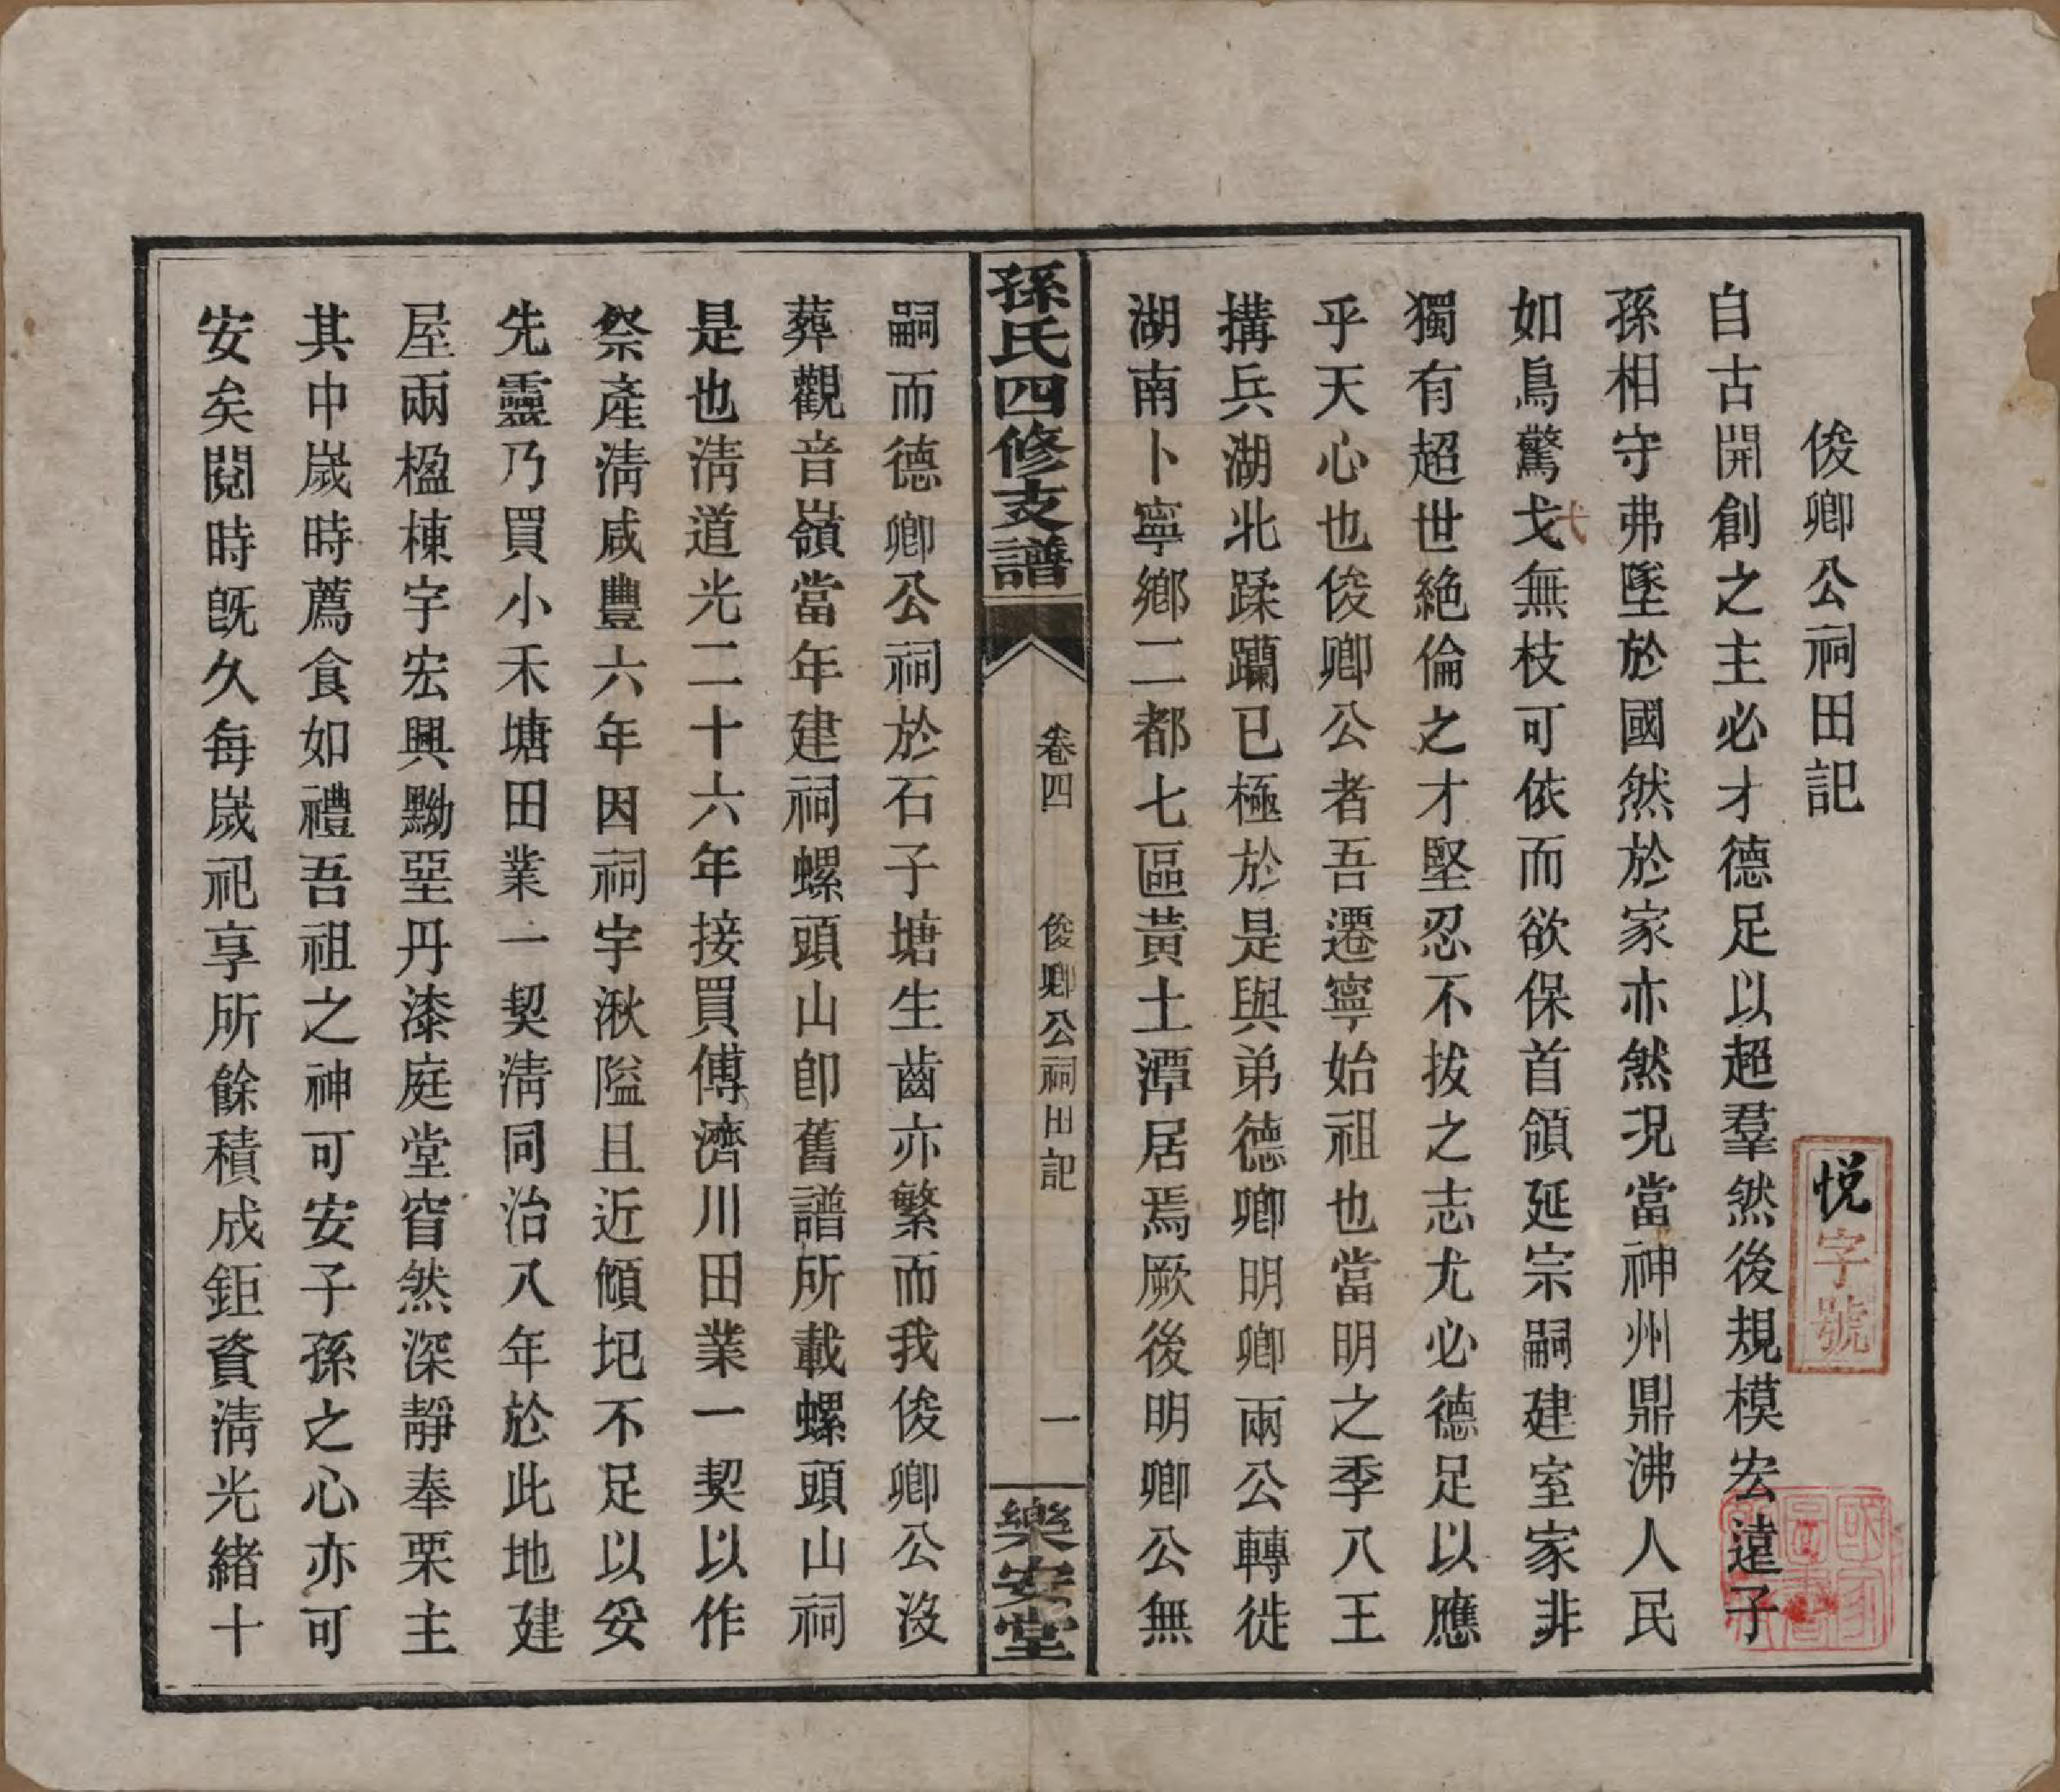 俊卿公祠田記
悦字號
自古開創之主必才德足以超羣然後規模宏遠子
孫相守弗墜於國然於家亦然況當神州鼎沸人民
如鳥驚戈無枝可依而欲保首領延宗嗣建室家非
弋
獨有超世絶倫之才堅忍不拔之志尤必德足以應
乎天心也俊卿公者吾遷寧始祖也當明之季八王
搆兵湖北蹂躪已極於是與弟德卿明卿兩公轉徙
湖南卜寧鄉二都七區黃土潭居焉厥後明卿公無
孫氏四修支譜
卷四
俊卿公祠田記
一
樂安堂
嗣而德卿公祠於石子塘生齒亦繁而我俊卿公沒
葬觀音嶺當年建祠螺頭山卽舊譜所載螺頭山祠
是也淸道光二十六年接買傅濟川田業一契以作
祭產淸咸豐六年因祠宇湫隘且近傾圮不足以妥
先靈乃買小禾塘田業一契淸同治八年於此地建
屋兩楹棟宇宏興黝堊丹漆庭堂窅然深靜奉栗主
其中歲時薦食如禮吾祖之神可安子孫之心亦可
安矣閱時旣久每歲祀享所餘積成鉅資淸光緒十